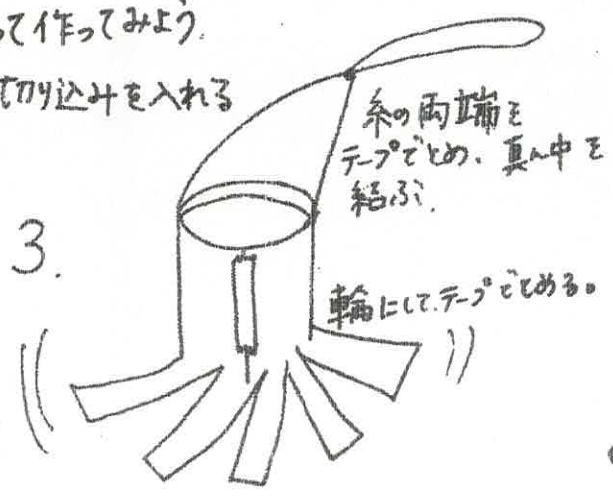 って作ってみよう.
切り込みを入れる
糸の両端を
テープでとめ、真ん中を
結ぶ.
3.
輪にして、テープでとめる。